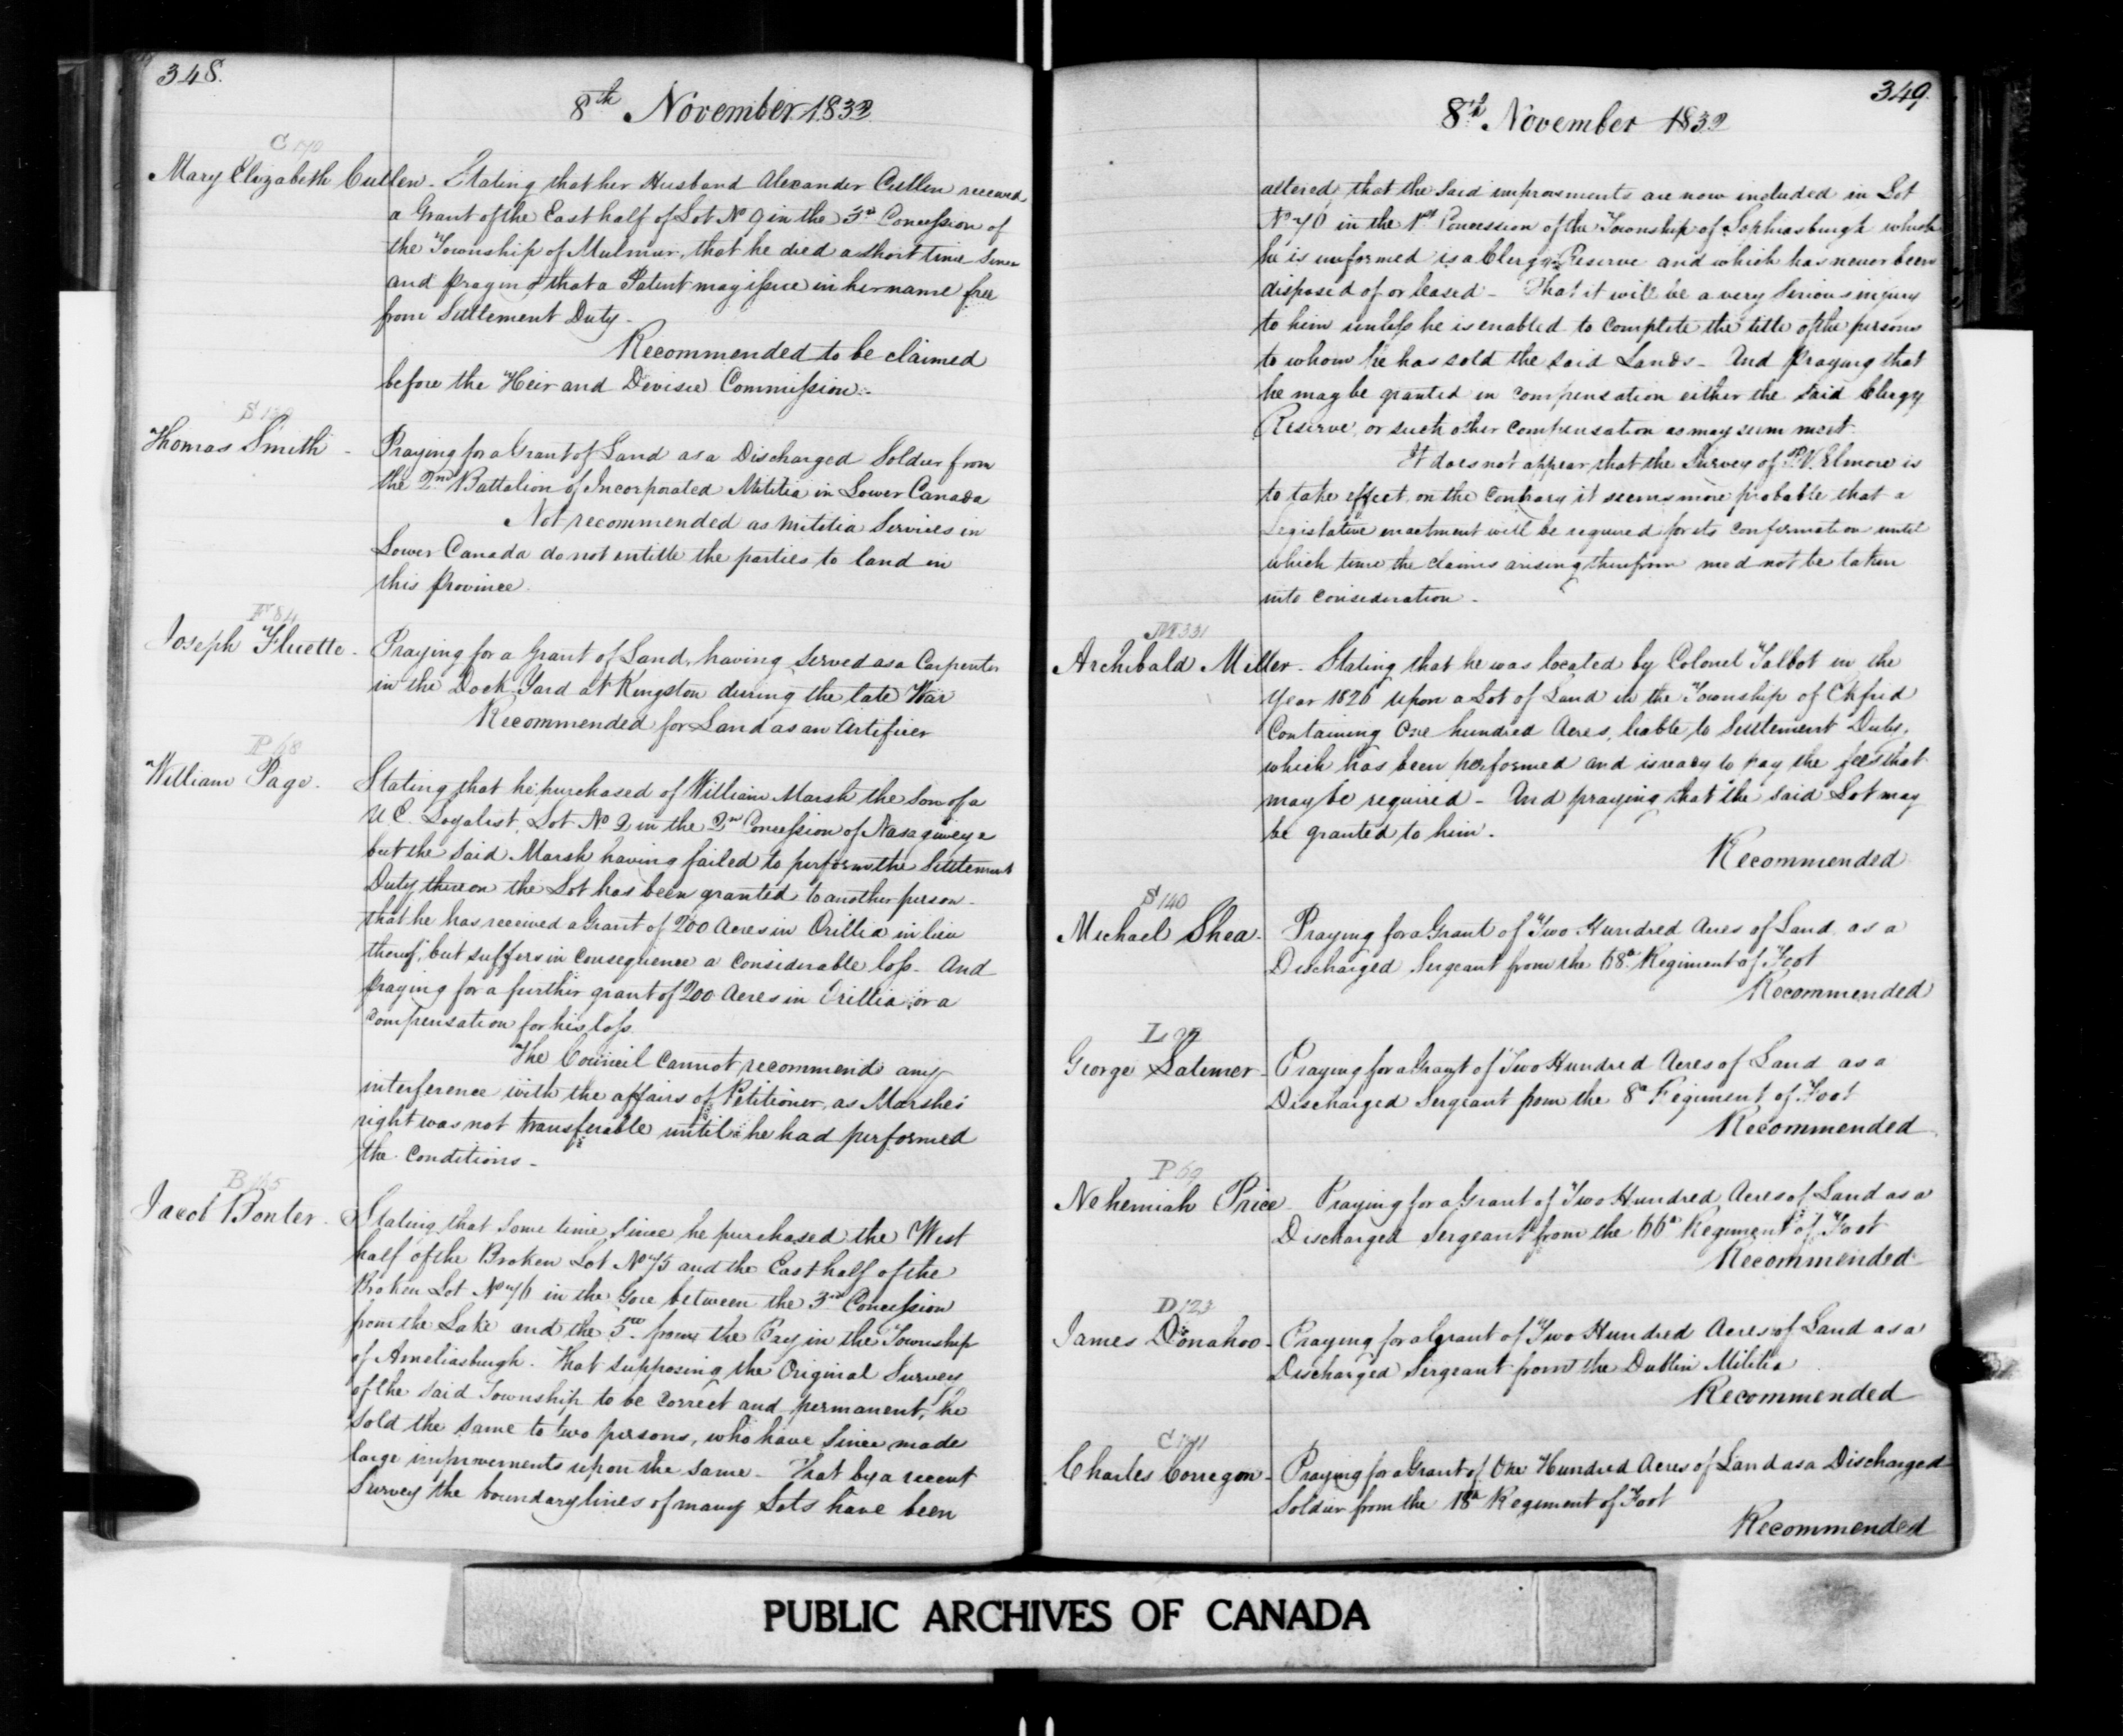 348.
8th November 1832
C 170
Mary Elizabeth Cullen - Stating that her Husband Alexander Cullen received
a Grant of the East half of Lot No 9 in the 3rd Concession of
the Township of Mulmur, that he died a short time since
and praying that a Patent may issue in her name free
from Settlement Duty -
Recommended to be claimed
before the Heir and Devisee Commission -
Thomas Smith - Praying for a Grant of Land as a Discharged Soldier from
the 2nd Battalion of Incorporated Militia in Lower Canada
Not recommended as Militia Services in
Lower Canada do not entitle the parties to land in
this province.
F 84
Joseph Fluette - Praying for a Grant of Land, having served as a Carpenter
in the Dock Yard at Kingston during the late War
Recommended for Land as an Artificer
P 68
William Page. Stating that he purchased of William Marsh the son of a
U.E. Loyalist, Lot No 2 in the 2nd Concession of Nasagiweya
but the said Marsh having failed to perform the Settlement
Duty thereon the Lot has been granted to another person -
that he has received a Grant of 200 Acres in Orillia in lieu
thereof, but suffers in consequence a considerable loss - And
praying for a further grant of 200 Acres in Orillia, or a
compensation for his loss.
The Council cannot recommend any
interference with the affairs of Petitioner, as Marshes
right was not transferable until he had performed
the conditions -
B 165
Jacob Bonter - Stating that some time since he purchased the West
half of the Broken Lot No 75 and the East half of the
Broken Lot No 76 in the Gore between the 3rd Concession
from the Lake and the 5th from the Bay in the Township
of Ameliasburgh. That supposing the Original Survey
of the said Township to be correct and permanent, he
sold the same to two persons, who have since made
large improvements upon the same - That by a recent
Survey the boundary lines of many Lots have been
349.
8th November 1832
altered, that the said improvements are now included in Lot
No 70 in the 1st Concession of the Township of Sophiasburgh which
he is informed is a Clergy Reserve and which has never been
disposed of or leased - That it will be a very serious injury
to him unless he is enabled to complete the title of the persons
to whom he has sold the said Lands - And praying that
he may be granted in compensation either the said Clergy
Reserve, or such other compensation as may seem meet.
It does not appear that the Survey of P.V. Elmore is
to take effect, on the contrary it seems more probable that a
Legislative enactment will be required for its confirmation until
which time the claims arising therefrom need not be taken
into consideration -
M 331
Archibald Miller - Stating that he was located by Colonel Talbot in the
Year 1826 upon a Lot of Land in the Township of Ekfrid
Containing One hundred Acres, liable to Settlement Duty,
which has been performed and is ready to pay the fees that
may be required - And praying that the said Lot may
be granted to him -
Recommended
S 140
Michael Shea - Praying for a Grant of Two Hundred Acres of Land as a
Discharged Sergeant from the 68th Regiment of Foot
Recommended
George Latimer - Praying for a Grant of Two Hundred Acres of Land as a
Discharged Sergeant from the 8th Regiment of Foot
Recommended
P 69
Nehemiah Price - Praying for a Grant of Two Hundred Acres of Land as a
Discharged Sergeant from the 66th Regiment of Foot
Recommended
D 123
James Donahoo - Praying for a Grant of Two Hundred Acres of Land as a
Discharged Sergeant from the Dublin Militia
Recommended
C 171
Charles Corregan - Praying for a Grant of One Hundred Acres of Land as a Discharged
Soldier from the 18th Regiment of Foot
Recommended
PUBLIC ARCHIVES OF CANADA